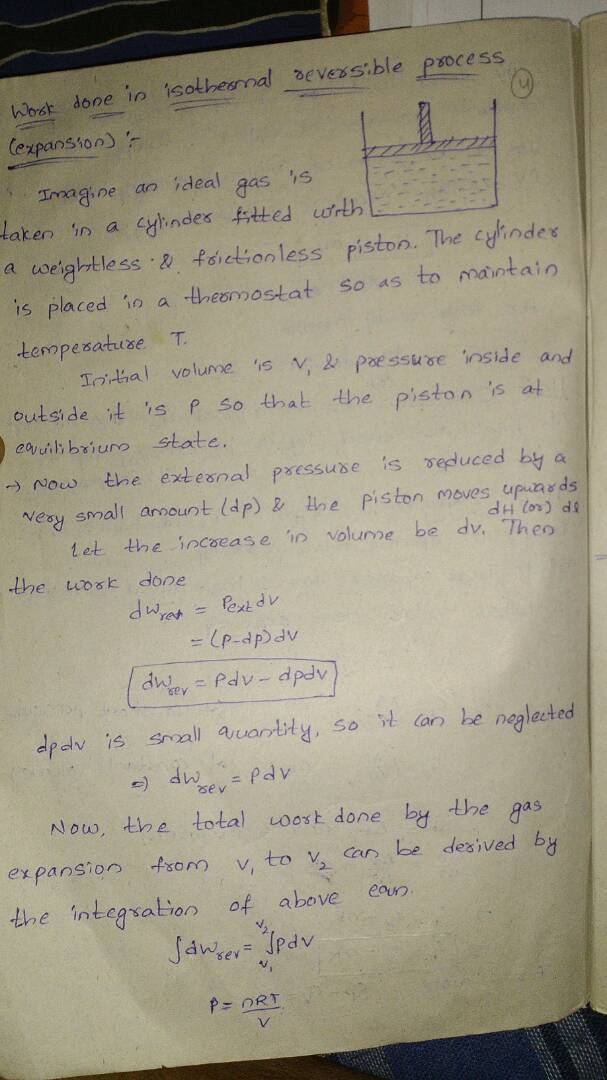 Work done in isothermal reversible process
(4)
(expansion) :-
Imagine an ideal gas is
taken in a cylinder fitted with
a weightless & frictionless piston. The cylinder
is placed in a thermostat so as to maintain
temperature T.
Initial volume is V₁ & pressure inside and
outside it is P so that the piston is at
equilibrium state.
→ Now the external pressure is reduced by a
very small amount (dp) & the piston moves upwards
dH (or) dl
Let the increase in volume be dv. Then
the work done
dW_rev = P_ext dv
= (P-dp)dv
dW_rev = Pdv - dpdv
dpdv is small quantity, so it can be neglected
⇒ dW_rev = Pdv
Now, the total work done by the gas
expansion from V₁ to V₂ can be derived by
the integration of above eqn.
∫dW_rev = ∫_{V₁}^{V₂} pdv
P = nRT/V